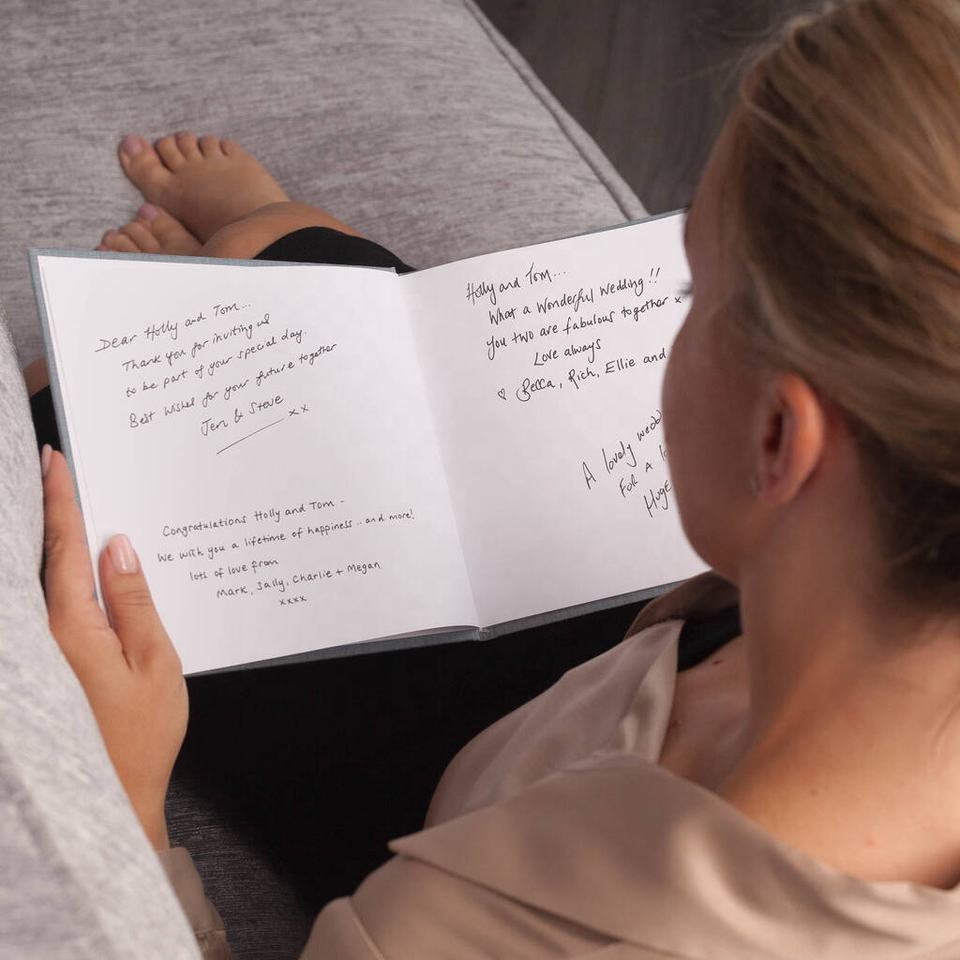 Dear Holly and Tom...
Thank you for inviting us
to be part of your special day.
Best wishes for your future together
Jen & Steve xx
Congratulations Holly and Tom -
We wish you a lifetime of happiness .. and more!
lots of love from
Mark, Sally, Charlie + Megan
xxxx
Holly and Tom...
What a Wonderful Wedding!!
You two are fabulous together x
Love always
♡ Becca, Rich, Ellie and
A lovely
For a
Huge